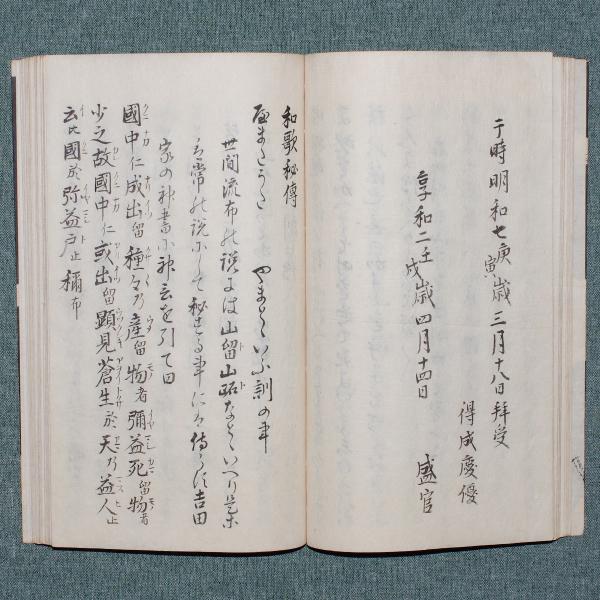 于時明和七庚寅歳三月十八日拝受
得成慶優
享和二壬戌歳四月十四日
盛官
和歌秘傳
やまとうた やまとゝいふ訓の事
世間流布の説には山留山跡なとゝいへり是ハ
尋常の説にして秘する事にハ侍らす吉田
家の神書に神云を引て曰
國中仁成出留種々乃産留物者彌益死留物者
少之故國中仁或出留顕見蒼生於天乃益人止
云比國於弥益戸止稱布